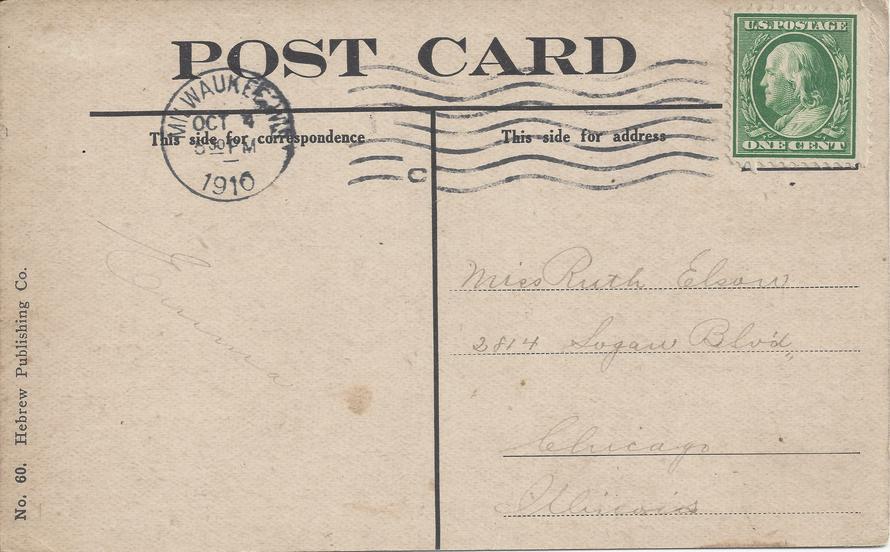 POST CARD
U.S. POSTAGE
ONE CENT
MILWAUKEE, WIS.
OCT 4
30 PM
1910
C
This side for correspondence
This side for address
Emma
Miss Ruth Elson
2814 Logan Blv'd,
Chicago
Illinois
No. 60. Hebrew Publishing Co.